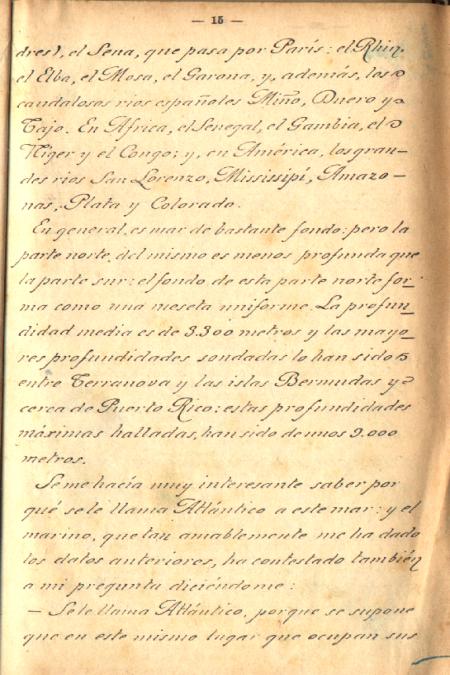 — 15 —
dres), el Sena, que pasa por París: el Rhin,
el Elba, el Mosa, el Garona, y, además, los
caudalosos rios españoles Miño, Duero y
Tajo. En Africa, el Senegal, el Gambia, el
Níger y el Congo; y, en América, los gran-
des rios San Lorenzo, Mississipí, Amazo-
nas, Plata y Colorado.
En general, es mar de bastante fondo: pero la
parte norte, del mismo es menos profunda que
la parte sur: el fondo de esta parte norte for-
ma como una meseta uniforme. La profun-
didad media es de 3.300 metros y las mayo-
res profundidades sondadas lo han sido
entre Terranova y las islas Bermudas y
cerca de Puerto Rico: estas profundidades
máximas halladas, han sido de unos 9.000
metros.
Se me hacía muy interesante saber por
qué se le llama Atlántico a este mar: y el
marino, que tan amablemente me ha dado
los datos anteriores, ha contestado también
a mi pregunta diciéndome:
— Se le llama Atlántico, porque se supone
que en este mismo lugar que ocupan sus